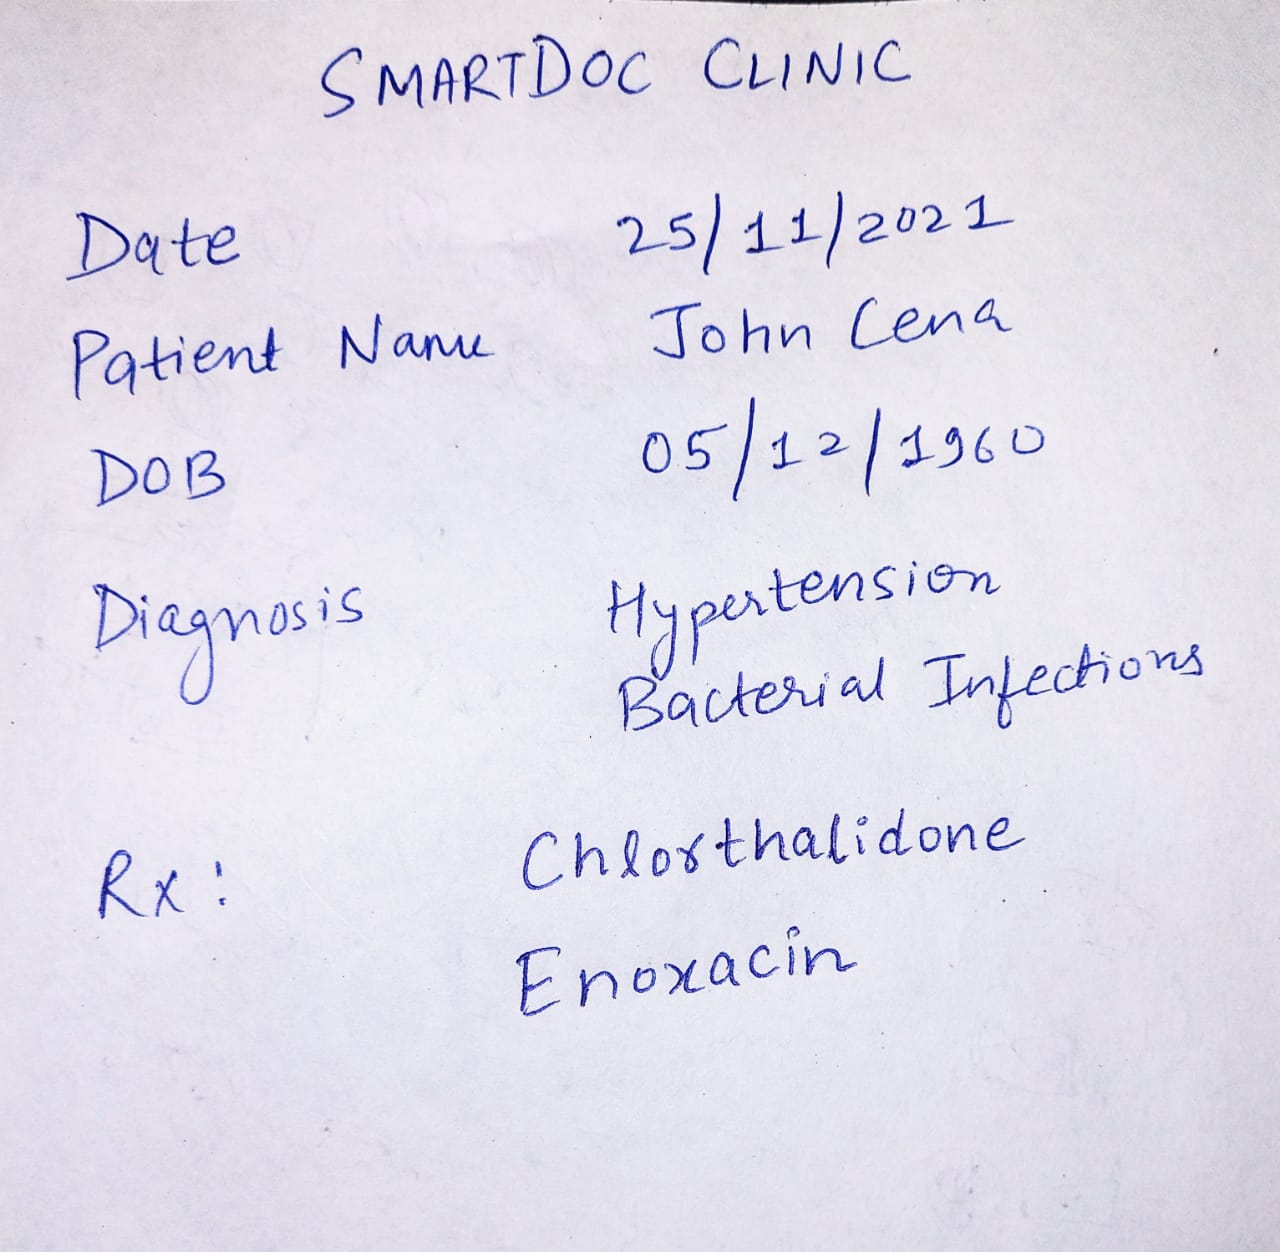 SMARTDOC CLINIC
Date 25/11/2021
Patient Name John Cena
DOB 05/12/1960
Diagnosis Hypertension
Bacterial Infections
Rx: Chlorthalidone
Enoxacin